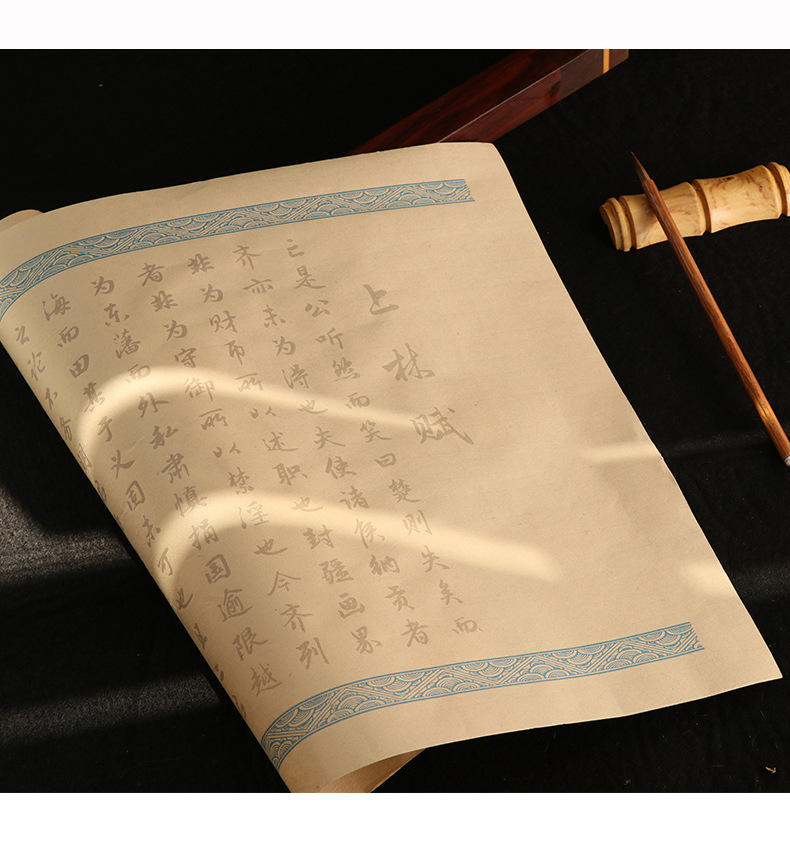 上林赋
亡是公听然而笑曰楚则失矣而
齐亦未为得也夫使诸侯纳贡者
非为财币所以述职也封疆画界
者非为守御所以禁淫也今齐列
为东藩而外私肃慎捐国逾限越
海而田其于义固未可也且
之论不务明